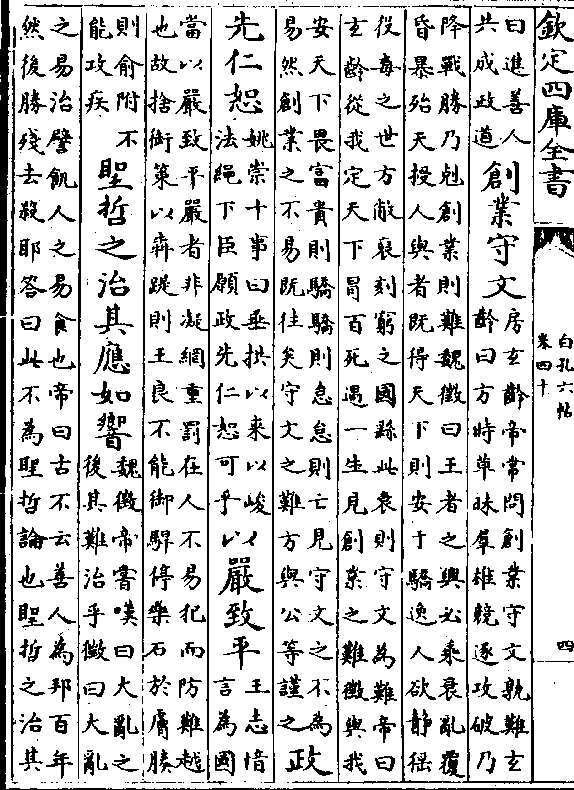 欽定四庫全書
白孔六帖
卷四十
四
曰進善人
共成政道
創業守文
房玄齡帝常問創業守文孰難玄
齡曰方時草昧羣雄競逐攻破乃
降戰勝乃剋創業則難魏徵曰王者之興必乘衰亂覆
昏暴殆天授人與者既得天下則安于驕逸人欲靜徭
役毒之世方敝裒刻窮之國繇此衰則守文為難帝曰
玄齡從我定天下冒百死遇一生見創業之難徵與我
安天下畏富貴則驕驕則怠怠則亡見守文之不為
易然創業之不易既往矣守文之難方與公等謹之
政
先仁恕
姚崇十事曰垂拱以来以峻
法繩下臣願政先仁恕可乎
以嚴致平
王志愔
言為國
當以嚴致平嚴者非凝網重罰在人不易犯而防難越
也故捨銜策以奔踶則王良不能御駻停藥石於膚腠
則俞附不
能攻疾
聖哲之治其應如響
魏徵帝嘗嘆曰大亂之
後其難治乎徵曰大亂
之易治譬飢人之易食也帝曰古不云善人為邦百年
然後勝殘去殺耶答曰此不為聖哲論也聖哲之治其